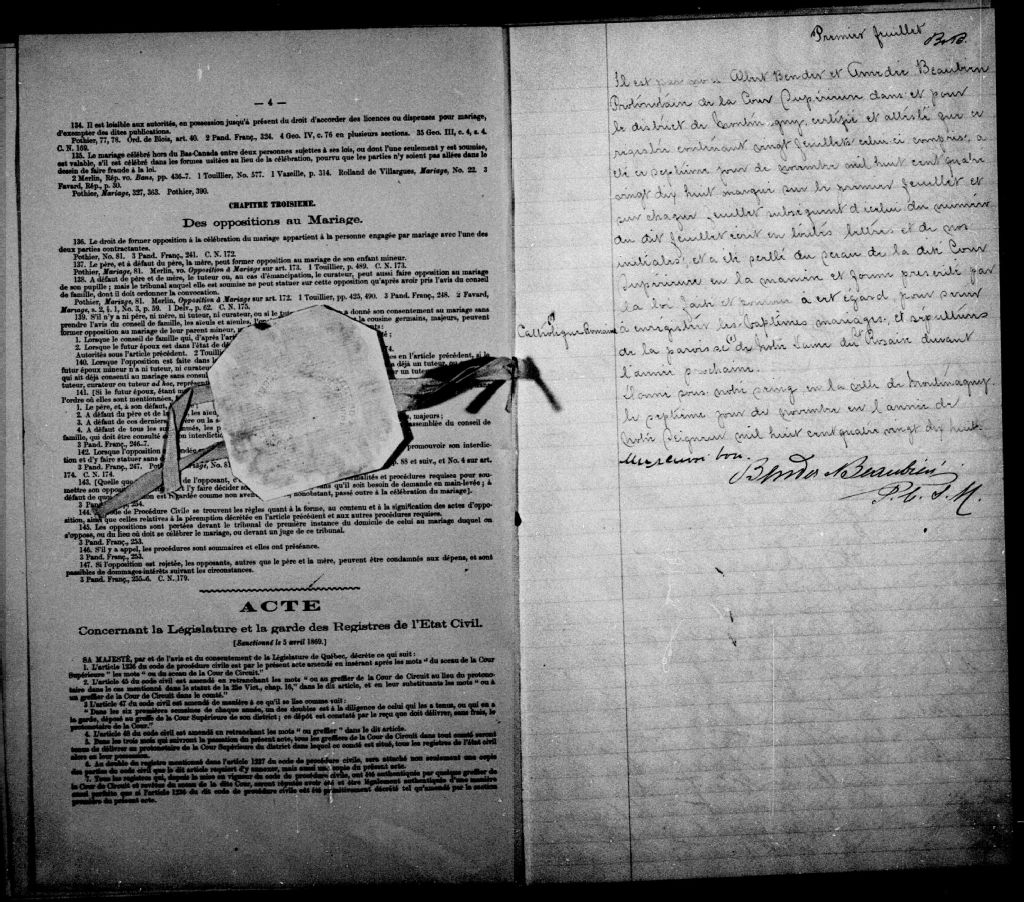 — 4 —
134. Il est loisible aux autorités, en possession jusqu'à présent du droit d'accorder des licences ou dispenses pour mariage,
d'exempter des dites publications.
Pothier, 77, 78. Ord. de Blois, art. 40. 2 Pand. Franç., 324. 4 Geo. IV, c. 76 en plusieurs sections. 35 Geo. III, c. 4, s. 4.
C. N. 169.
135. Le mariage célébré hors du Bas-Canada entre deux personnes sujettes à ses lois, ou dont l'une seulement y est soumise,
est valable, s'il est célébré dans les formes usitées au lieu de la célébration, pourvu que les parties n'y soient pas allées dans le
dessein de faire fraude à la loi.
2 Merlin, Rép. vo. Bans, pp. 436-7. 1 Touillier, No. 577. 1 Vazeille, p. 314. Rolland de Villargues, Mariage, No. 22. 3
Favard, Rép., p. 50.
Pothier, Mariage, 327, 363. Pothier, 390.
CHAPITRE TROISIEME.
Des oppositions au Mariage.
136. Le droit de former opposition à la célébration du mariage appartient à la personne engagée par mariage avec l'une des
deux parties contractantes.
Pothier, No. 81. 3 Pand. Franç., 241. C. N. 172.
137. Le père, et à défaut du père, la mère, peut former opposition au mariage de son enfant mineur.
Pothier, Mariage, 81. Merlin, vo. Opposition à Mariage sur art. 173. 1 Touillier, p. 489. C. N. 173.
138. A défaut de père et de mère, le tuteur ou, au cas d'émancipation, le curateur, peut aussi faire opposition au mariage
de son pupille ; mais le tribunal auquel elle est soumise ne peut statuer sur cette opposition qu'après avoir pris l'avis du conseil
de famille, dont il doit ordonner la convocation.
Pothier, Mariage, 81. Merlin, Opposition à Mariage sur art. 172. 1 Touillier, pp. 425, 490. 3 Pand. Franç., 248. 2 Favard,
Mariage, s. 2, § 1, No. 3, p. 59. 1 Delv., p. 62. C. N. 175.
139. S'il n'y a ni père, ni mère, ni tuteur, ni curateur, ou si le a donné son consentement au mariage sans
prendre l'avis du conseil de famille, les aïeuls et aïeules, cousins germains, majeurs, peuvent
former opposition au mariage de leur parent mineur,
1. Lorsque le conseil de famille qui, d'après l'
2. Lorsque le futur époux est dans l'état de
Autorités sous l'article précédent. 2 Touill
140. Lorsque l'opposition est faite dans le en l'article précédent, si le
futur époux mineur n'a ni tuteur, ni curateur a déjà un tuteur ou
qui ait déjà consenti au mariage sans consul
tuteur, curateur ou tuteur ad hoc, représent
141. [Si le futur époux, étant
l'ordre où elles sont mentionnées,
1. Le père, et, à son défaut,
2. A défaut du père et de majeurs ;
3. A défaut de ces derniers
4. A défaut de tous les assemblée du conseil de
famille, qui doit être consulté
3 Pand. Franç., 246-7.
142. Lorsque l'opposition promouvoir son interdic-
tion et d'y faire statuer sans
3 Pand. Franç., 247. 88 et suiv., et No. 4 sur art.
174. C. N. 174.
143. [Quelle que de l'opposant, formalités et procédures requises pour sou-
mettre son opposition l'y faire décider soit besoin de demande en main-levée ; à
défaut de quoi est regardée comme non avenue nonobstant, passé outre à la célébration du mariage].
144. de Procédure Civile se trouvent les règles quant à la forme, au contenu et à la signification des actes d'oppo-
sition, ainsi que celles relatives à la péremption décrétée en l'article précédent et aux autres procédures requises.
145. Les oppositions sont portées devant le tribunal de première instance du domicile de celui au mariage duquel on
s'oppose, ou du lieu où doit se célébrer le mariage, ou devant un juge de ce tribunal.
3 Pand. Franç., 253.
146. S'il y a appel, les procédures sont sommaires et elles ont préséance.
3 Pand. Franç., 253.
147. Si l'opposition est rejetée, les opposants, autres que le père et la mère, peuvent être condamnés aux dépens, et sont
passibles de dommages-intérêts suivant les circonstances.
3 Pand. Franç., 255-6. C. N. 179.
ACTE
Concernant la Législature et la garde des Registres de l'Etat Civil.
[Sanctionné le 5 avril 1869.]
SA MAJESTÉ, par et de l'avis et du consentement de la Législature de Québec, décrète ce qui suit :
1. L'article 1236 du code de procédure civile est par le présent acte amendé en insérant après les mots " du sceau de la Cour
Supérieure " les mots " ou du sceau de la Cour de Circuit."
2. L'article 45 du code civil est amendé en retranchant les mots " ou au greffier de la Cour de Circuit au lieu du protono-
taire dans le cas mentionné dans le statut de la 25e Vict., chap. 16," dans le dit article, et en leur substituant les mots " ou à
un greffier de la Cour de Circuit dans le comté."
3 L'article 47 du code civil est amendé de manière à ce qu'il se lise comme suit :
" Dans les six premières semaines de chaque année, un des doubles est à la diligence de celui qui les a tenus, ou qui en a
la garde, déposé au greffe de la Cour Supérieure de son district ; ce dépôt est constaté par le reçu que doit délivrer, sans frais, le
protonotaire de la Cour."
4. L'article 48 du code civil est amendé en retranchant les mots " ou greffier " dans le dit article.
5. Dans les trois mois qui suivront la passation du présent acte, tous les greffiers de la Cour de Circuit dans tout comté seront
tenus de délivrer au protonotaire de la Cour Supérieure du district dans lequel ce comté est situé, tous les registres de l'état civil
alors en leur possession.
6. Au double du registre mentionné dans l'article 1237 du code de procédure civile, sera attaché non seulement une copie
des parties du code civil que le dit article requiert d'y annexer, mais aussi une copie du présent acte.
7. Tous les registres qui, depuis la mise en vigueur du code de procédure civile, ont été authentiqués par quelque greffier de
la Cour de Circuit et revêtus du sceau de la dite Cour, seront réputés avoir été et être légalement authentiqués d'une manière
aussi parfaite que si l'article 1236 du dit code de procédure civile eût été primitivement décrété tel qu'amendé par la section
première du présent acte.
Premier feuillet
B&B.
Il est par nous Albert Bender et Amedée Beaubien
Protonotaire de la Cour Supérieure dans et pour
le district de Montmagny, certifié et attesté que ce
registre contenant vingt feuillets celui ci compris, a
été ce septième jour de novembre mil huit cent quatre
vingt dix huit marqué sur le premier feuillet et
sur chaque feuillet subséquent d'icelui du numéro
du dit feuillet écrit en toutes lettres et de nos
initiales, et a été scellé du sceau de la dite Cour
Supérieure en la manière et forme prescrite par
la loi, fait et pourvu à cet égard, pour servir
à enregistrer les baptêmes, mariages, et sépultures
Catholique Romaine
de la paroisse de Notre Dame du Rosaire durant
l'année prochaine.
Donné sous notre seing en la ville de Montmagny,
le septième jour de novembre en l'année de
Notre Seigneur mil huit cent quatre vingt dix huit.
Bender & Beaubien
P. C. S. M.